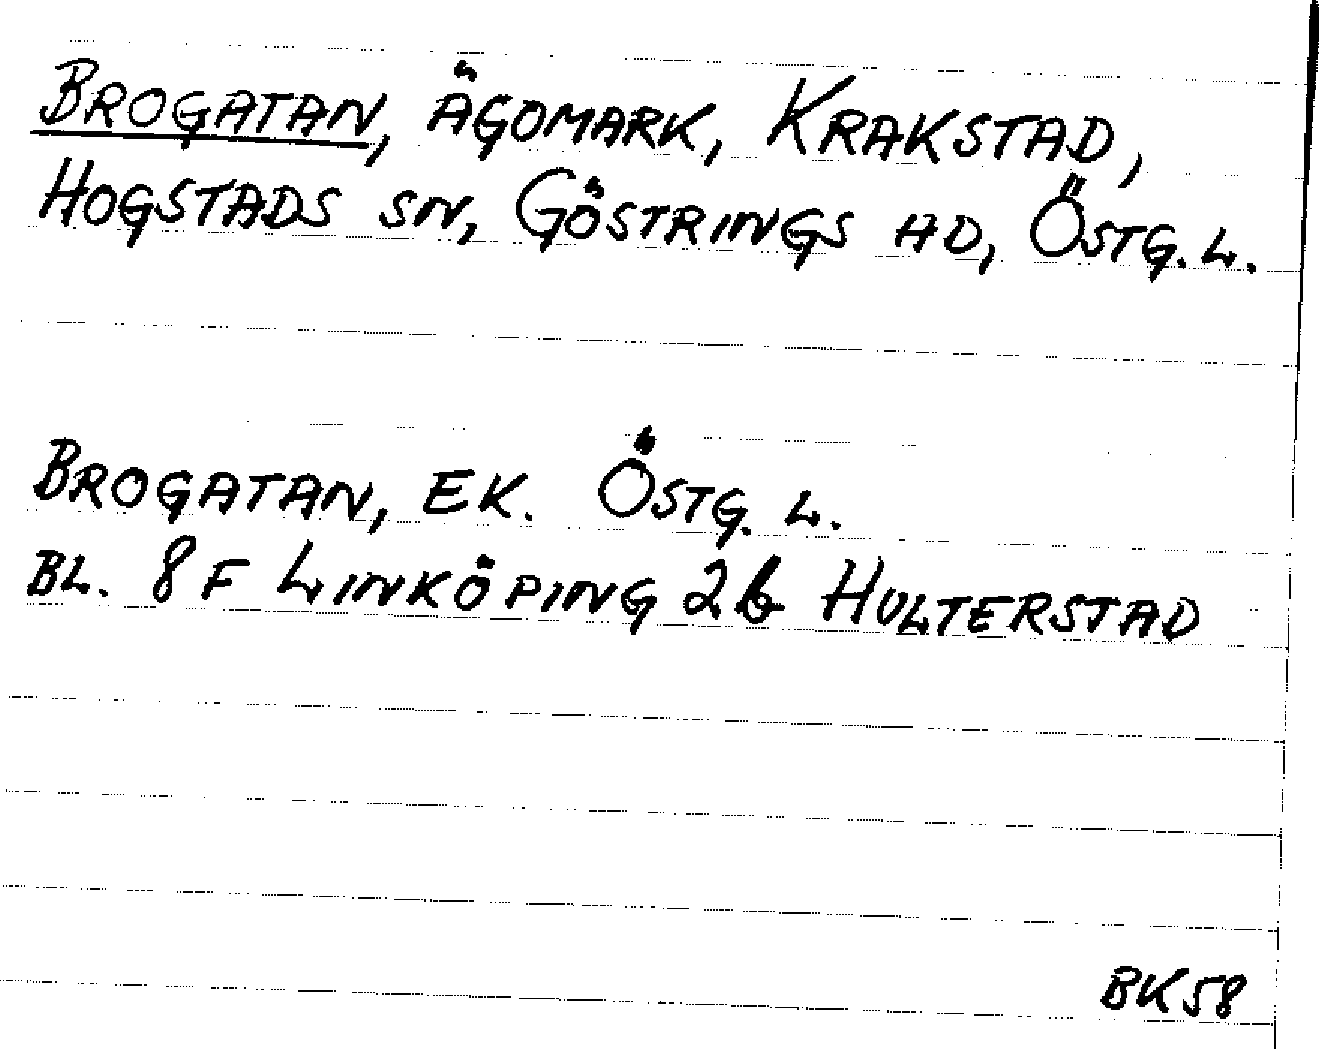 BROGATAN, ÄGOMARK, KRAKSTAD,
HOGSTADS SN, GÖSTRINGS HD, ÖSTG. L.
BROGATAN, EK. ÖSTG. L.
BL. 8 F LINKÖPING 2b HULTERSTAD
BK58